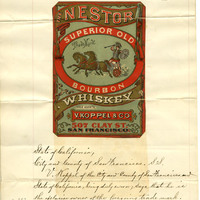 NESTOR
SUPERIOR OLD
BOURBON
WHISKEY
V. KOPPEL & CO.
507 CLAY ST.
SAN FRANCISCO.
State of California,
City and County of San Francisco, S.S.
V. Koppel of the City and County of San Francisco and
State of California, being duly sworn, says that he is
the